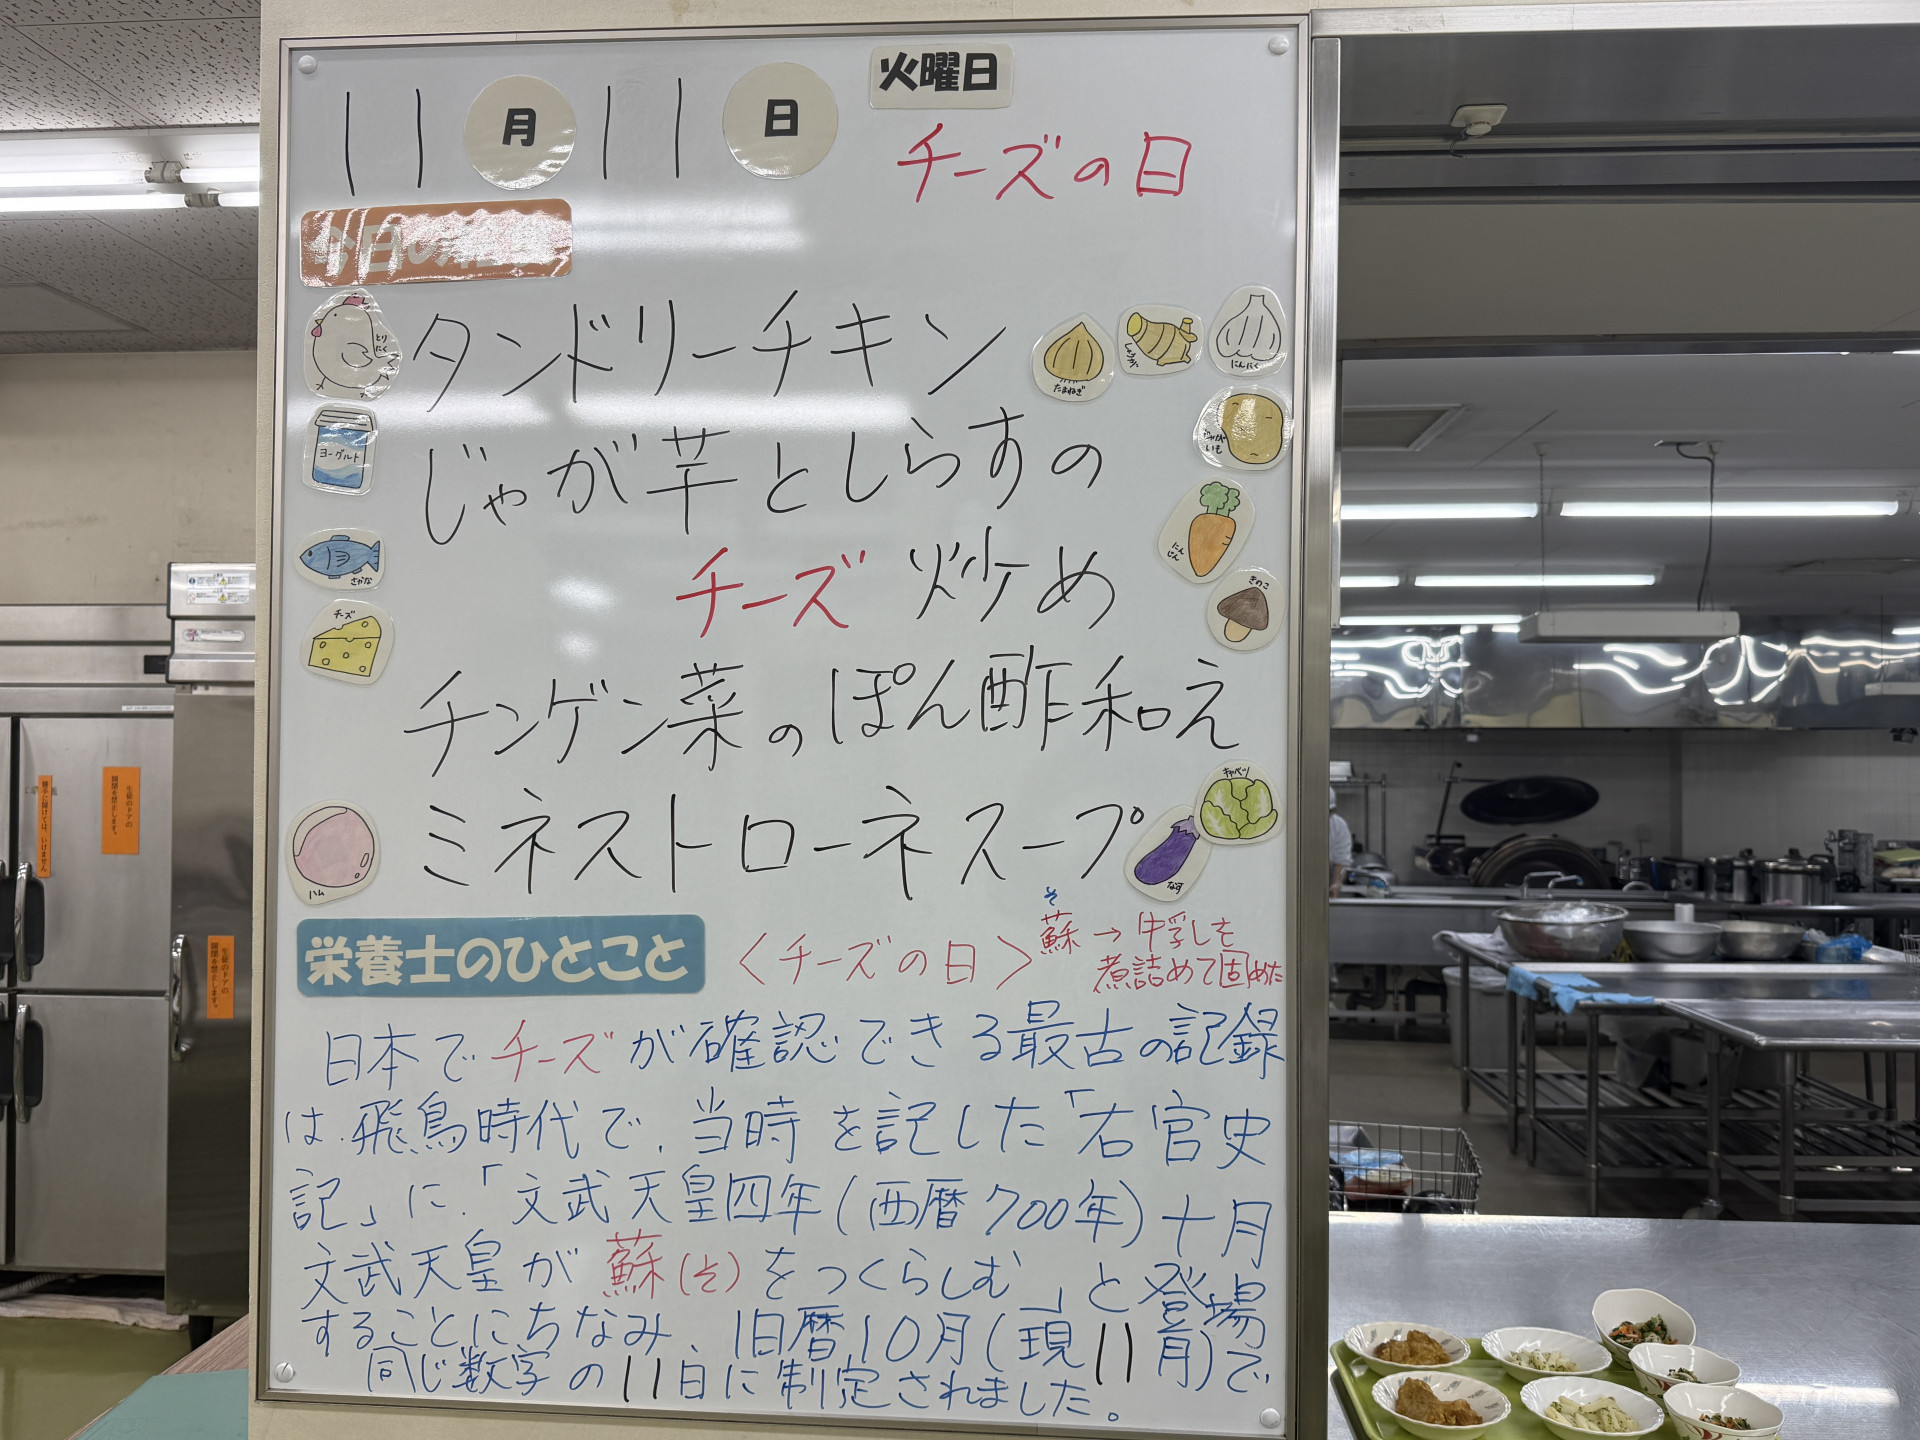 11月11日 火曜日
チーズの日
今日の
タンドリーチキン
とりにく
たまねぎ
しょうが
にんにく
ヨーグルト
じゃが芋としらすの
じゃがいも
チーズ炒め
さかな
にんじん
きのこ
チーズ
チンゲン菜のぽん酢和え
キャベツ
ミネストローネスープ
ハム
なす
栄養士のひとこと
〈チーズの日〉
そ
蘇→牛乳を
煮詰めて固めた
日本でチーズが確認できる最古の記録
は、飛鳥時代で、当時を記した「右官史
記」に、「文武天皇四年(西暦700年)十月
文武天皇が蘇(そ)をつくらしむ」と登場
することにちなみ、旧暦10月(現11月)で
同じ数字の11日に制定されました。
生徒のドアの
開閉を禁止します。
勝手に開けては、いけません
生徒のドアの
開閉を禁止します。